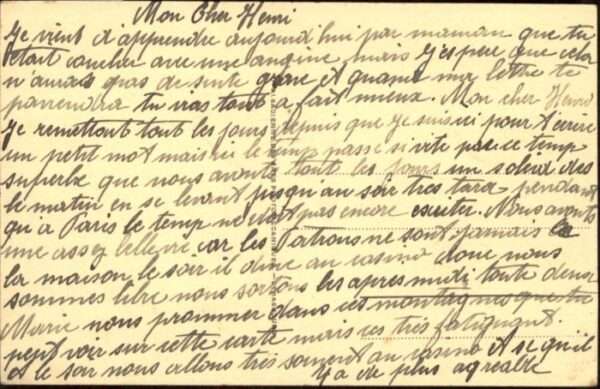 Mon Cher Henri
Je vient d'apprendre aujourd hui par maman que tu
etait coucher avec une angine, mais j'espere que cela
n'auras pas de suite grave et quand ma lettre te
parvendra tu vras tout a fait mieux. Mon cher Henri
Je remettout tout les jours depuis que je suis ici pour t'ecrire
un petit mot mais ici le temp passe si vite par ce temp
superbe que nous avont tout les jours un soleil des
le matin en se levant jusqu au soir tres tard pendant
qu'a Paris le temp ne doit pas encore exciter. Nous avonts
une assez belle vie car les Patrons ne sont jamais a
la maison, le soir il dine au casino donc nous
sommes libre nous sortons les apres midi toute deux
Marie nous prommer dans ces montagnes que tu
peut voir sur cette carte mais ces très fatigugant.
et le soir nous allons très souvent au casino et se qu'il
y a de plus agreable